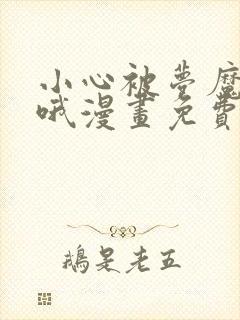 小心被夢魔
哦漫畫免費
鵝是老五